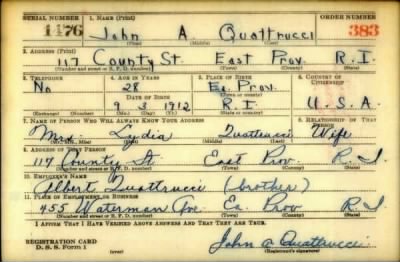 SERIAL NUMBER 1. NAME (Print) ORDER NUMBER
1476 John A. Quattrucci 383
(First) (Middle) (Last)
2. ADDRESS (Print)
117 County St. East Prov. R.I.
(Number and street or R. F. D. number) (Town) (County) (State)
3. TELEPHONE 4. AGE IN YEARS 5. PLACE OF BIRTH 6. COUNTRY OF CITIZENSHIP
No 28 Ea. Prov.
(Town or county)
DATE OF BIRTH
9 3 1912 R.I. U.S.A.
(Exchange) (Number) (Mo.) (Day) (Yr.) (State or country)
7. NAME OF PERSON WHO WILL ALWAYS KNOW YOUR ADDRESS 8. RELATIONSHIP OF THAT PERSON
Mrs. Lydia Quattrucci Wife
(Mr., Mrs., Miss) (First) (Middle) (Last)
9. ADDRESS OF THAT PERSON
117 County St. East Prov. R.I.
(Number and street or R. F. D. number) (Town) (County) (State)
10. EMPLOYER'S NAME
Albert Quattrucci (brother)
11. PLACE OF EMPLOYMENT OR BUSINESS
455 Waterman Ave Ea. Prov R.I.
(Number and street or R. F. D. number) (Town) (County) (State)
I AFFIRM THAT I HAVE VERIFIED ABOVE ANSWERS AND THAT THEY ARE TRUE.
REGISTRATION CARD
D. S. S. Form 1 (over) John A Quattrucci
(Registrant's signature)